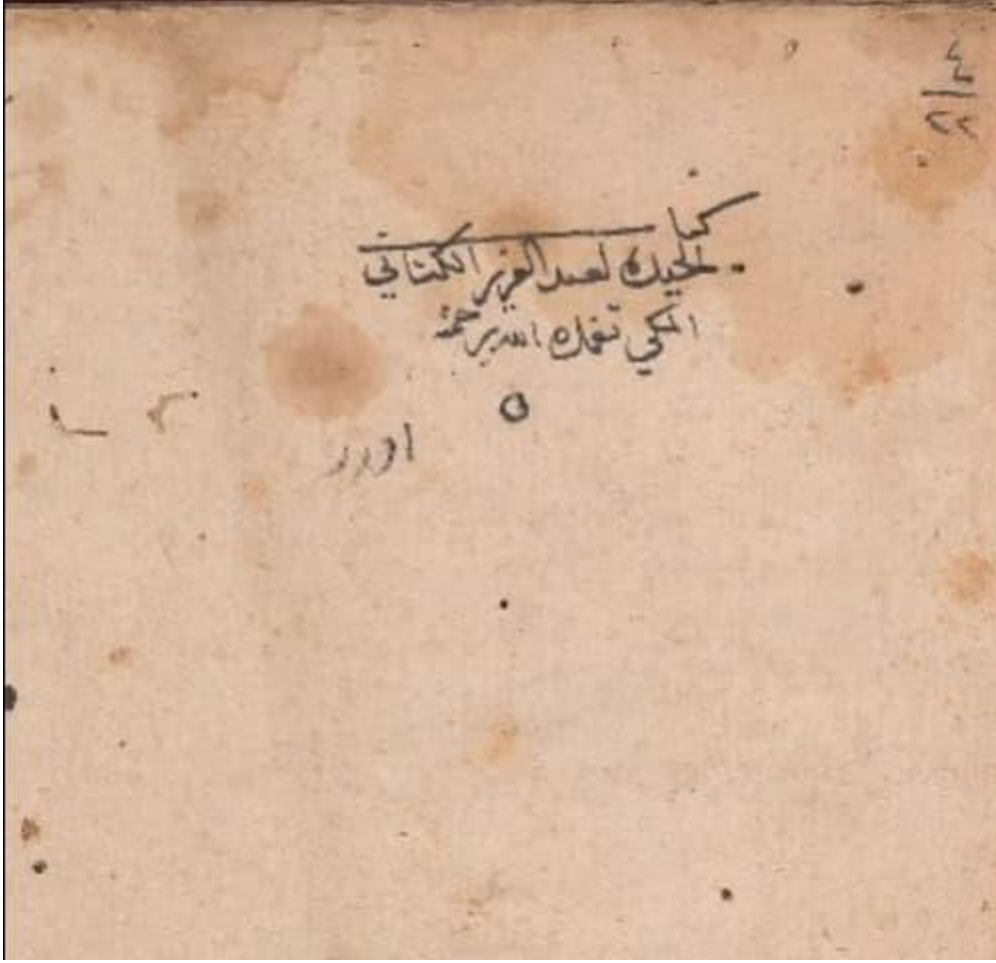 ٤/٢٢
كتاب
الحيده لعبد العزيز الكناني
المكي تغمده الله برحمته